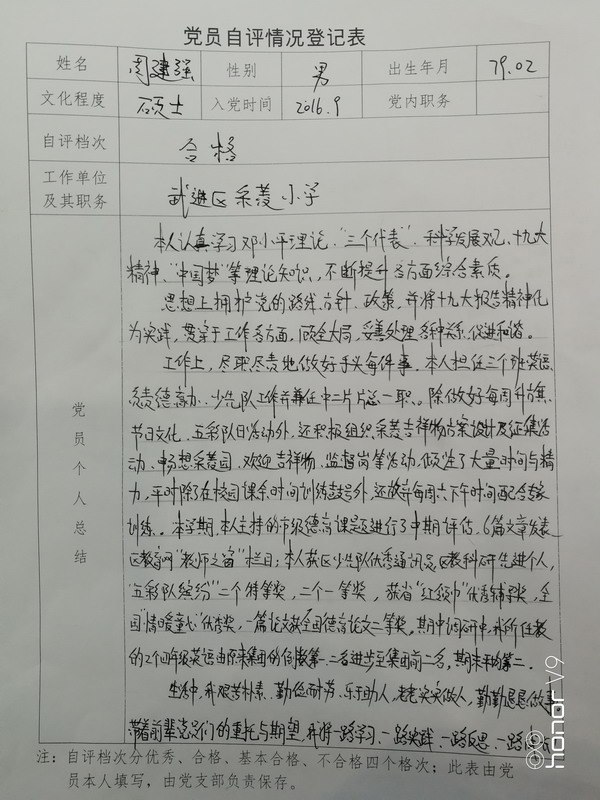 党员自评情况登记表
姓名 周建强 性别 男 出生年月 79.02
文化程度 硕士 入党时间 2016.9 党内职务
自评档次 合格
工作单位及其职务 武进区采菱小学
党员个人总结
本人认真学习邓小平理论、“三个代表”、科学发展观、十九大
精神、“中国梦”等理论知识，不断提升各方面综合素质。
思想上拥护党的路线、方针、政策，并将十九大报告精神化
为实践，贯穿于工作各方面，顾全大局，妥善处理各种关系，促进和谐。
工作上，尽职尽责地做好手头每件事，本人担任三个班英语、
负责德育办、少先队工作并兼任中二片片总一职。除做好每周升旗、
节日文化、五彩队日活动外，还积极组织采菱吉祥物方案设计及征集活
动、畅想采菱园、欢迎吉祥物、监督岗等活动，倾注了大量时间与精
力，平时除在校园课余时间训练鼓号外，还放弃每周六下午时间配合专家
训练。本学期，本人主持的市级德育课题进行了中期评估，6篇文章发表
区教育网“教师之窗”栏目；本人获区少先队优秀通讯员、区教科研先进个人，
“五彩队缤纷”二个特等奖，二个一等奖，获省“红领巾”优秀辅导奖，全
国“情暖童心”优秀奖，一篇论文获全国德育论文二等奖。期中调研中，我所任教
的2个四年级英语由原来集团的倒数第一、二名进步至集团前二名，期末平均第二。
生活中，我艰苦朴素、勤俭耐劳、乐于助人，老老实实做人，勤勤恳恳做事，
带着前辈党员们的重托与期望，我将一路学习、一路实践、一路反思、一路
注：自评档次分优秀、合格、基本合格、不合格四个格次；此表由党
员本人填写，由党支部负责保存。
honor V9